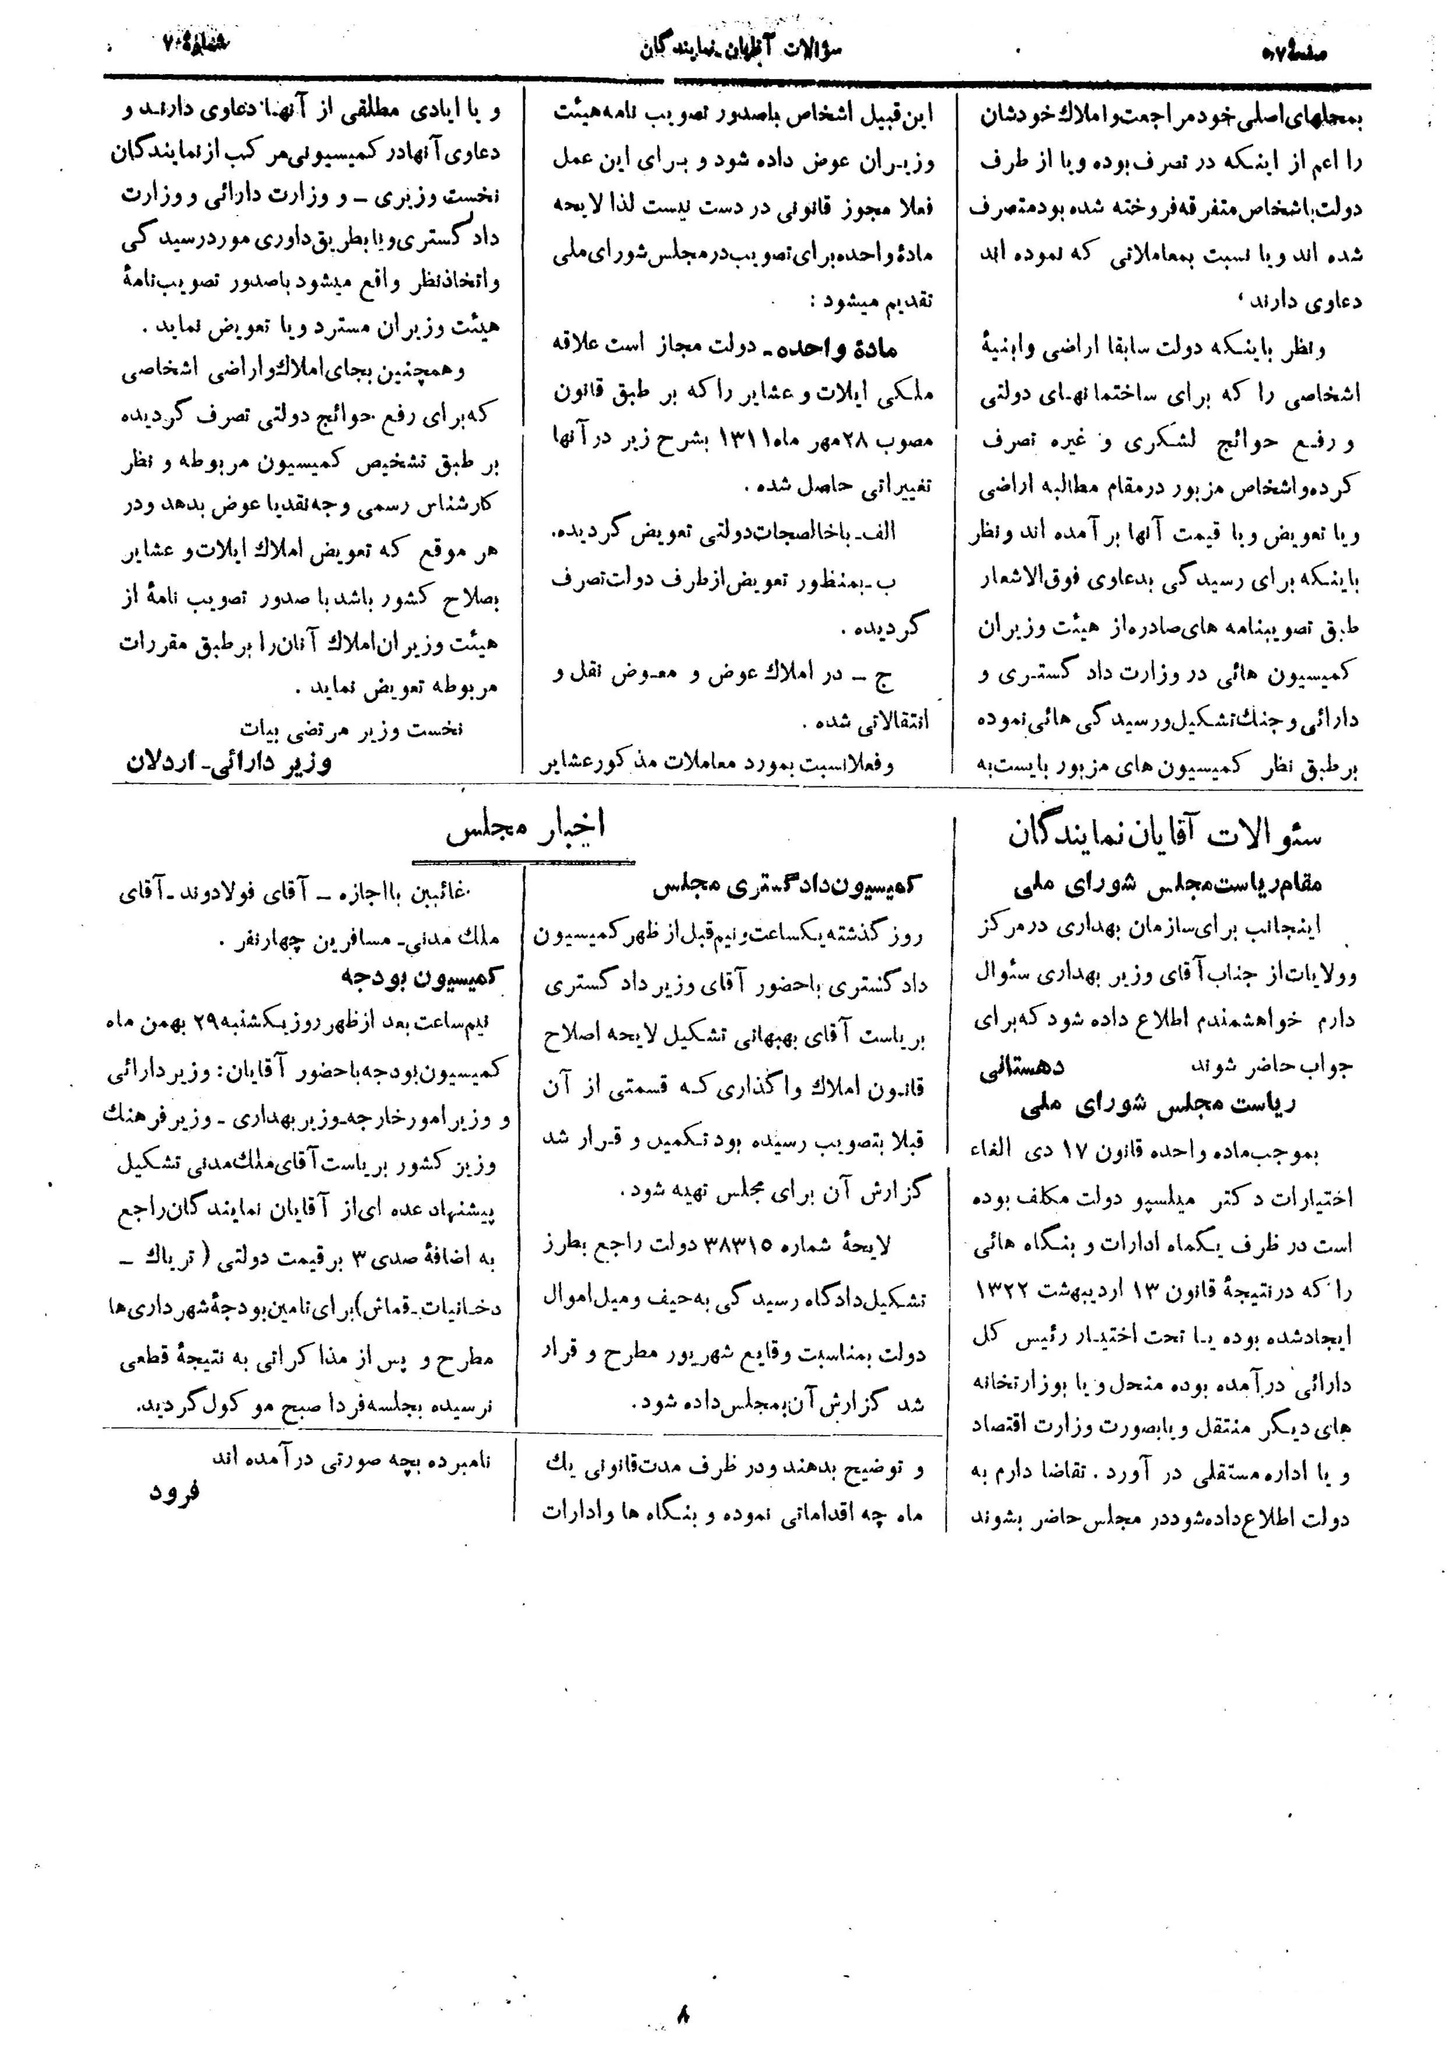 صفحهٔ ۷
سؤالات آقایان نمایندگان
شمارهٔ ۷۰
بمحلهای اصلی خود مراجعت و املاك خودشان
را اعم از اینکه در تصرف بوده و یا از طرف
دولت باشخاص متفرقه فروخته شده بود متصرف
شده اند و یا نسبت بمعاملاتی که نموده اند
دعاوی دارند ،
و نظر باینکه دولت سابقا اراضی و ابنیهٔ
اشخاصی را که برای ساختمانهای دولتی
و رفع حوائج لشکری و غیره تصرف
کرده و اشخاص مزبور در مقام مطالبه اراضی
و یا تعویض و یا قیمت آنها بر آمده اند و نظر
باینکه برای رسیدگی بدعاوی فوق الاشعار
طبق تصویبنامه های صادره از هیئت وزیران
کمیسیون هائی در وزارت دادگستری و
دارائی و جنك تشکیل و رسیدگی هائی نموده
بر طبق نظر کمیسیون های مزبور بایست به
این قبیل اشخاص باصدور تصویب نامه هیئت
وزیران عوض داده شود و برای این عمل
فعلا مجوز قانونی در دست نیست لذا لایحه
مادهٔ واحده برای تصویب در مجلس شورای ملی
تقدیم میشود :
مادهٔ واحده ـ دولت مجاز است علاقه
ملکی ایلات و عشایر را که بر طبق قانون
مصوب ۲۸ مهر ماه ۱۳۱۱ بشرح زیر در آنها
تغییراتی حاصل شده .
الف ـ با خالصجات دولتی تعویض گردیده .
ب ـ بمنظور تعویض از طرف دولت تصرف
گردیده .
ج ـ در املاك عوض و معوض نقل و
انتقالاتی شده .
و فعلا نسبت بمورد معاملات مذکور عشایر
و یا ایادی مطلقی از آنها دعاوی دارند و
دعاوی آنها در کمیسیونی مرکب از نمایندگان
نخست وزیری ـ و وزارت دارائی و وزارت
دادگستری و یا بطریق داوری مورد رسیدگی
و اتخاذ نظر واقع میشود باصدور تصویب نامهٔ
هیئت وزیران مسترد و یا تعویض نماید .
و همچنین بجای املاك و اراضی اشخاصی
که برای رفع حوائج دولتی تصرف گردیده
بر طبق تشخیص کمیسیون مربوطه و نظر
کارشناس رسمی وجه نقد یا عوض بدهد و در
هر موقع که تعویض املاك ایلات و عشایر
بصلاح کشور باشد با صدور تصویب نامهٔ از
هیئت وزیران املاك آنان را بر طبق مقررات
مربوطه تعویض نماید .
نخست وزیر مرتضی بیات
وزیر دارائی ـ اردلان
سئوالات آقایان نمایندگان
مقام ریاست مجلس شورای ملی
اینجانب برای سازمان بهداری در مرکز
و ولایات از جناب آقای وزیر بهداری سئوال
دارم خواهشمندم اطلاع داده شود که برای
جواب حاضر شوند دهستانی
ریاست مجلس شورای ملی
بموجب ماده واحده قانون ۱۷ دی الغاء
اختیارات دکتر میلسپو دولت مکلف بوده
است در ظرف یکماه ادارات و بنگاه هائی
را که در نتیجهٔ قانون ۱۳ اردیبهشت ۱۳۲۲
ایجاد شده بوده یا تحت اختیار رئیس کل
دارائی در آمده بوده منحل و یا بوزارتخانه
های دیگر منتقل و یا بصورت وزارت اقتصاد
و یا اداره مستقلی در آورد . تقاضا دارم به
دولت اطلاع داده شود در مجلس حاضر بشوند
و توضیح بدهند و در ظرف مدت قانونی یك
ماه چه اقداماتی نموده و بنگاه ها و ادارات
نامبرده بچه صورتی در آمده اند
فرود
اخبار مجلس
کمیسیون دادگستری مجلس
روز گذشته یکساعت و نیم قبل از ظهر کمیسیون
دادگستری با حضور آقای وزیر دادگستری
بریاست آقای بهبهانی تشکیل لایحه اصلاح
قانون املاك واگذاری که قسمتی از آن
قبلا بتصویب رسیده بود تکمیل و قرار شد
گزارش آن برای مجلس تهیه شود .
لایحهٔ شماره ۳۸۳۱۵ دولت راجع بطرز
تشکیل دادگاه رسیدگی به حیف و میل اموال
دولت بمناسبت وقایع شهریور مطرح و قرار
شد گزارش آن بمجلس داده شود .
غائبین با اجازه ـ آقای فولادوند ـ آقای
ملك مدنی ـ مسافرین چهار نفر .
کمیسیون بودجه
نیم ساعت بعد از ظهر روز یکشنبه ۲۹ بهمن ماه
کمیسیون بودجه با حضور آقایان : وزیر دارائی
و وزیر امور خارجه ـ وزیر بهداری ـ وزیر فرهنك
وزیر کشور بریاست آقای ملك مدنی تشکیل
پیشنهاد عده ای از آقایان نمایندگان راجع
به اضافهٔ صدی ۳ بر قیمت دولتی ( تریاك ـ
دخانیات ـ قماش ) برای تامین بودجهٔ شهرداری ها
مطرح و پس از مذاکراتی به نتیجهٔ قطعی
نرسیده بجلسه فردا صبح موکول گردید .
۸